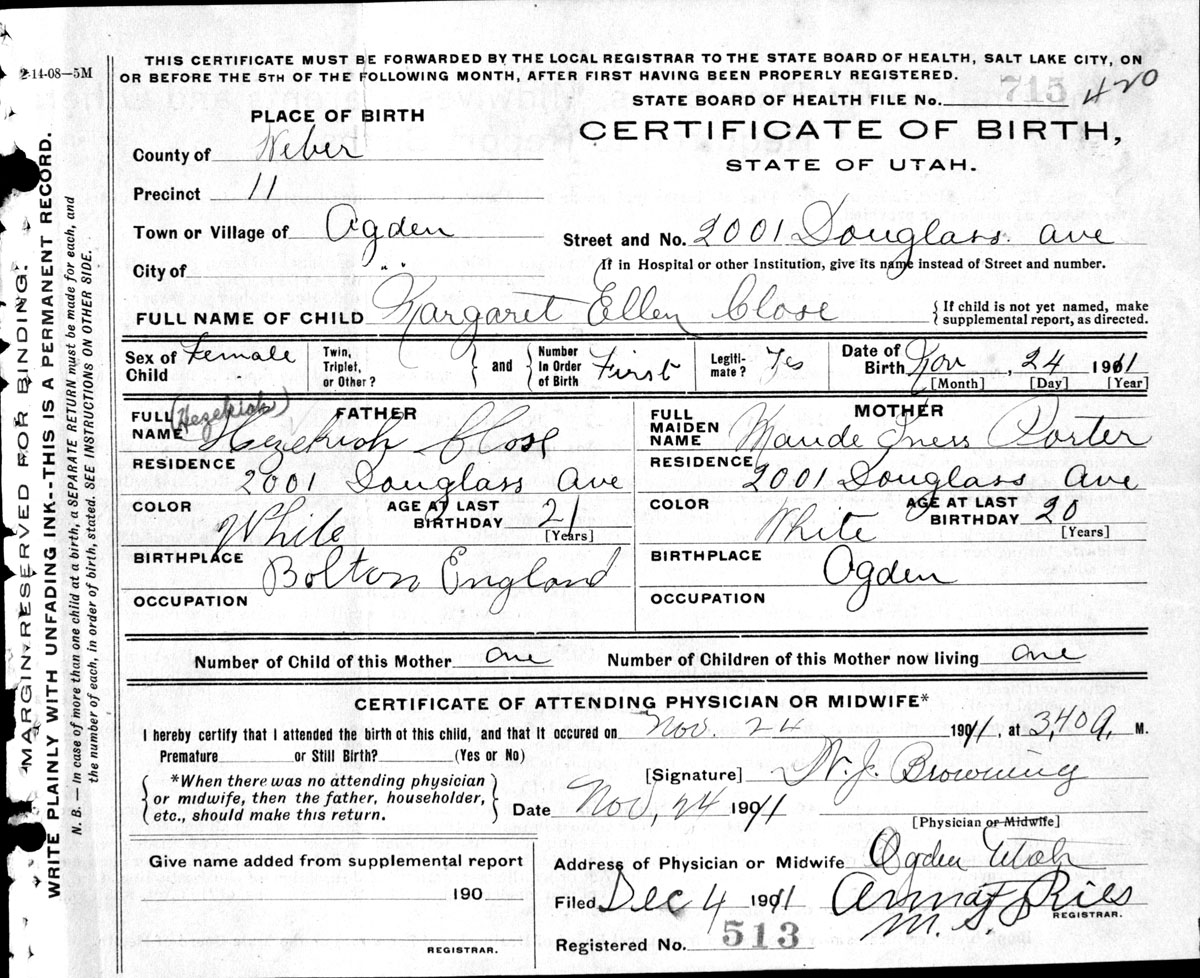 2-14-08—5M
THIS CERTIFICATE MUST BE FORWARDED BY THE LOCAL REGISTRAR TO THE STATE BOARD OF HEALTH, SALT LAKE CITY, ON
OR BEFORE THE 5TH OF THE FOLLOWING MONTH, AFTER FIRST HAVING BEEN PROPERLY REGISTERED.
STATE BOARD OF HEALTH FILE No. 715 420
PLACE OF BIRTH
CERTIFICATE OF BIRTH,
STATE OF UTAH.
County of Weber
Precinct 11
Town or Village of Ogden
Street and No. 2001 Douglass Ave
City of " "
If in Hospital or other Institution, give its name instead of Street and number.
FULL NAME OF CHILD Margaret Ellen Close
{If child is not yet named, make
supplemental report, as directed.
Sex of Child Female
Twin, Triplet, or Other?
and
Number in Order of Birth First
Legiti-mate? Yes
Date of Birth Nov, 24 1911
[Month] [Day] [Year]
FATHER
FULL NAME (Hezekiah) Hezekiah Close
RESIDENCE 2001 Douglass Ave
COLOR White
AGE AT LAST BIRTHDAY 21
[Years]
BIRTHPLACE Bolton England
OCCUPATION
MOTHER
FULL MAIDEN NAME Maude Iness Porter
RESIDENCE 2001 Douglass Ave
COLOR White
AGE AT LAST BIRTHDAY 20
[Years]
BIRTHPLACE Ogden
OCCUPATION
Number of Child of this Mother one
Number of Children of this Mother now living one
CERTIFICATE OF ATTENDING PHYSICIAN OR MIDWIFE*
I hereby certify that I attended the birth of this child, and that it occured on Nov. 24 1911, at 3,40 a, M.
Premature or Still Birth? (Yes or No)
{*When there was no attending physician
or midwife, then the father, householder,
etc., should make this return.}
[Signature] W. J. Browning
Date Nov, 24 1911
[Physician or Midwife]
Give name added from supplemental report
190
REGISTRAR.
Address of Physician or Midwife Ogden Utah
Filed Dec 4 1911
REGISTRAR.
Registered No. 513
MARGIN RESERVED FOR BINDING.
WRITE PLAINLY WITH UNFADING INK--THIS IS A PERMANENT RECORD.
N. B. — In case of more than one child at a birth, a SEPARATE RETURN must be made for each, and
the number of each, in order of birth, stated. SEE INSTRUCTIONS ON OTHER SIDE.